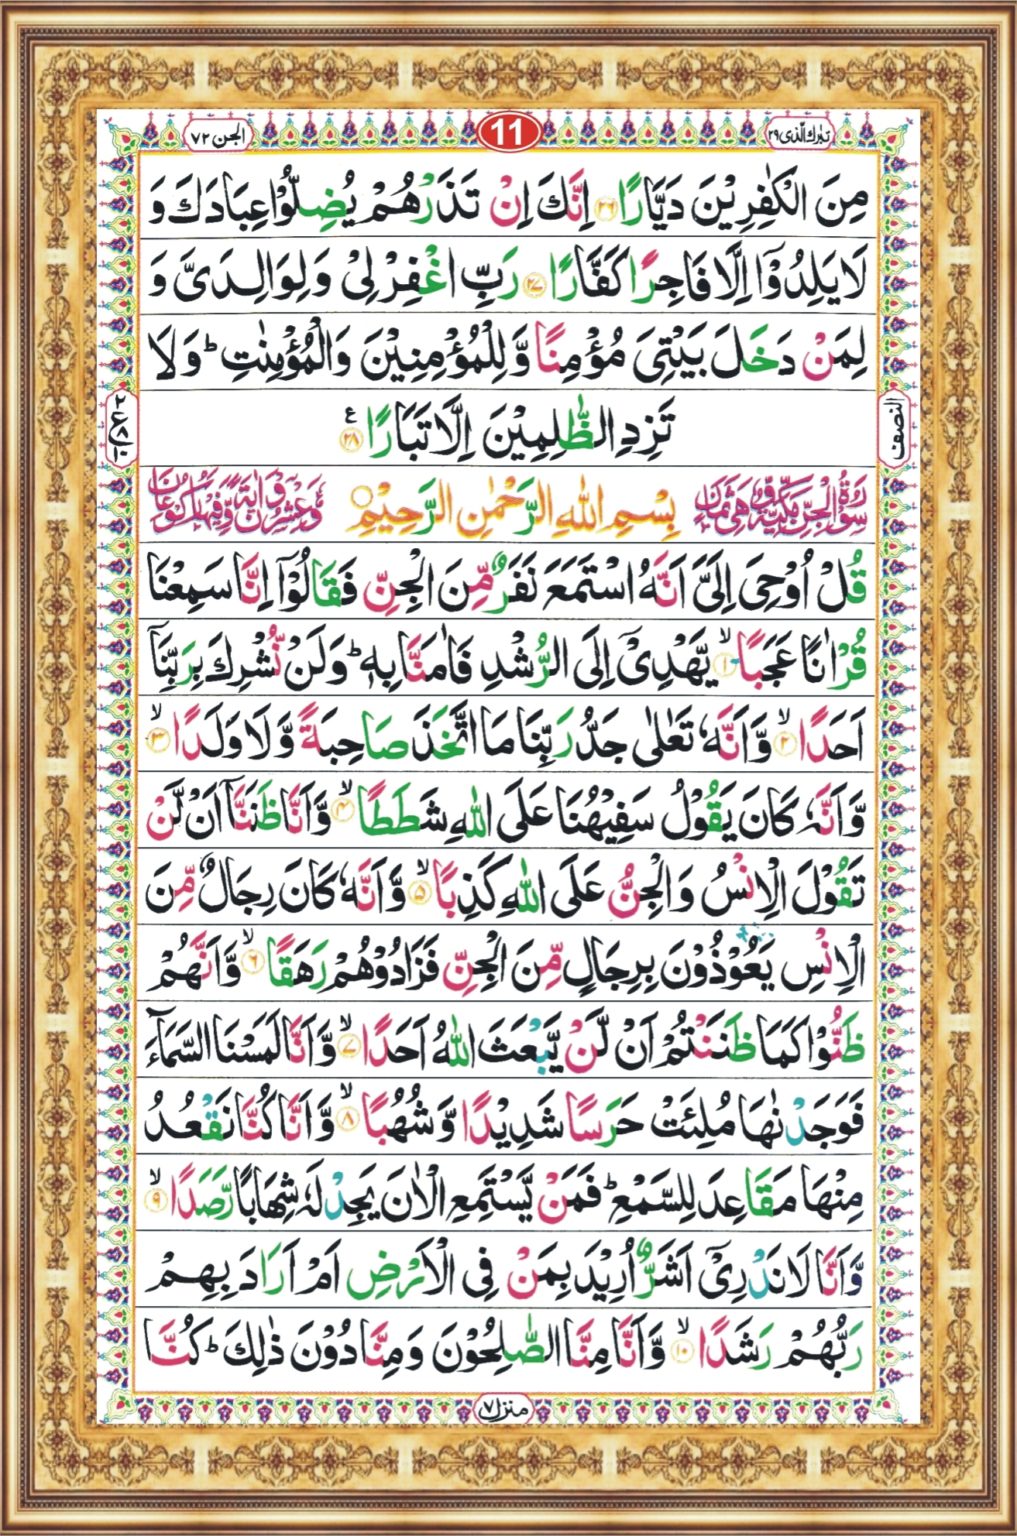 تبٰرك الّذی ۲۹
11
الجن ۷۲
مِنَ الْكٰفِرِيْنَ دَيَّارًا ۲۶ اِنَّكَ اِنْ تَذَرْهُمْ يُضِلُّوْا عِبَادَكَ وَ
لَا يَلِدُوْۤا اِلَّا فَاجِرًا كَفَّارًا ۲۷ رَبِّ اغْفِرْ لِیْ وَ لِوَالِدَیَّ وَ
لِمَنْ دَخَلَ بَيْتِیَ مُؤْمِنًا وَّ لِلْمُؤْمِنِيْنَ وَ الْمُؤْمِنٰتِ ؕ وَ لَا
تَزِدِ الظّٰلِمِيْنَ اِلَّا تَبَارًا ۲۸ ع
النصف
سُوْرَةُ الْجِنِّ مَكِّيَّةٌ وَّ هِیَ ثَمَانٍ بِسْمِ اللّٰهِ الرَّحْمٰنِ الرَّحِيْمِ وَّ عِشْرُوْنَ اٰيَةً وَّ فِيْهَا رُكُوْعَانِ
قُلْ اُوْحِیَ اِلَیَّ اَنَّهُ اسْتَمَعَ نَفَرٌ مِّنَ الْجِنِّ فَقَالُوْۤا اِنَّا سَمِعْنَا
قُرْاٰنًا عَجَبًا ۙ۱ يَّهْدِیْۤ اِلَی الرُّشْدِ فَاٰمَنَّا بِهٖ ؕ وَ لَنْ نُّشْرِكَ بِرَبِّنَاۤ
اَحَدًا ۙ۲ وَّ اَنَّهٗ تَعٰلٰی جَدُّ رَبِّنَا مَا اتَّخَذَ صَاحِبَةً وَّ لَا وَلَدًا ۙ۳
وَّ اَنَّهٗ كَانَ يَقُوْلُ سَفِيْهُنَا عَلَی اللّٰهِ شَطَطًا ۙ۴ وَّ اَنَّا ظَنَنَّاۤ اَنْ لَّنْ
تَقُوْلَ الْاِنْسُ وَ الْجِنُّ عَلَی اللّٰهِ كَذِبًا ۙ۵ وَّ اَنَّهٗ كَانَ رِجَالٌ مِّنَ
الْاِنْسِ يَعُوْذُوْنَ بِرِجَالٍ مِّنَ الْجِنِّ فَزَادُوْهُمْ رَهَقًا ۙ۶ وَّ اَنَّهُمْ
ظَنُّوْا كَمَا ظَنَنْتُمْ اَنْ لَّنْ يَّبْعَثَ اللّٰهُ اَحَدًا ۙ۷ وَّ اَنَّا لَمَسْنَا السَّمَآءَ
فَوَجَدْنٰهَا مُلِئَتْ حَرَسًا شَدِيْدًا وَّ شُهُبًا ۙ۸ وَّ اَنَّا كُنَّا نَقْعُدُ
مِنْهَا مَقَاعِدَ لِلسَّمْعِ ؕ فَمَنْ يَّسْتَمِعِ الْاٰنَ يَجِدْ لَهٗ شِهَابًا رَّصَدًا ۙ۹
وَّ اَنَّا لَا نَدْرِیْۤ اَشَرٌّ اُرِيْدَ بِمَنْ فِی الْاَرْضِ اَمْ اَرَادَ بِهِمْ
رَبُّهُمْ رَشَدًا ۙ۱۰ وَّ اَنَّا مِنَّا الصّٰلِحُوْنَ وَ مِنَّا دُوْنَ ذٰلِكَ ؕ كُنَّا
منزل ۷